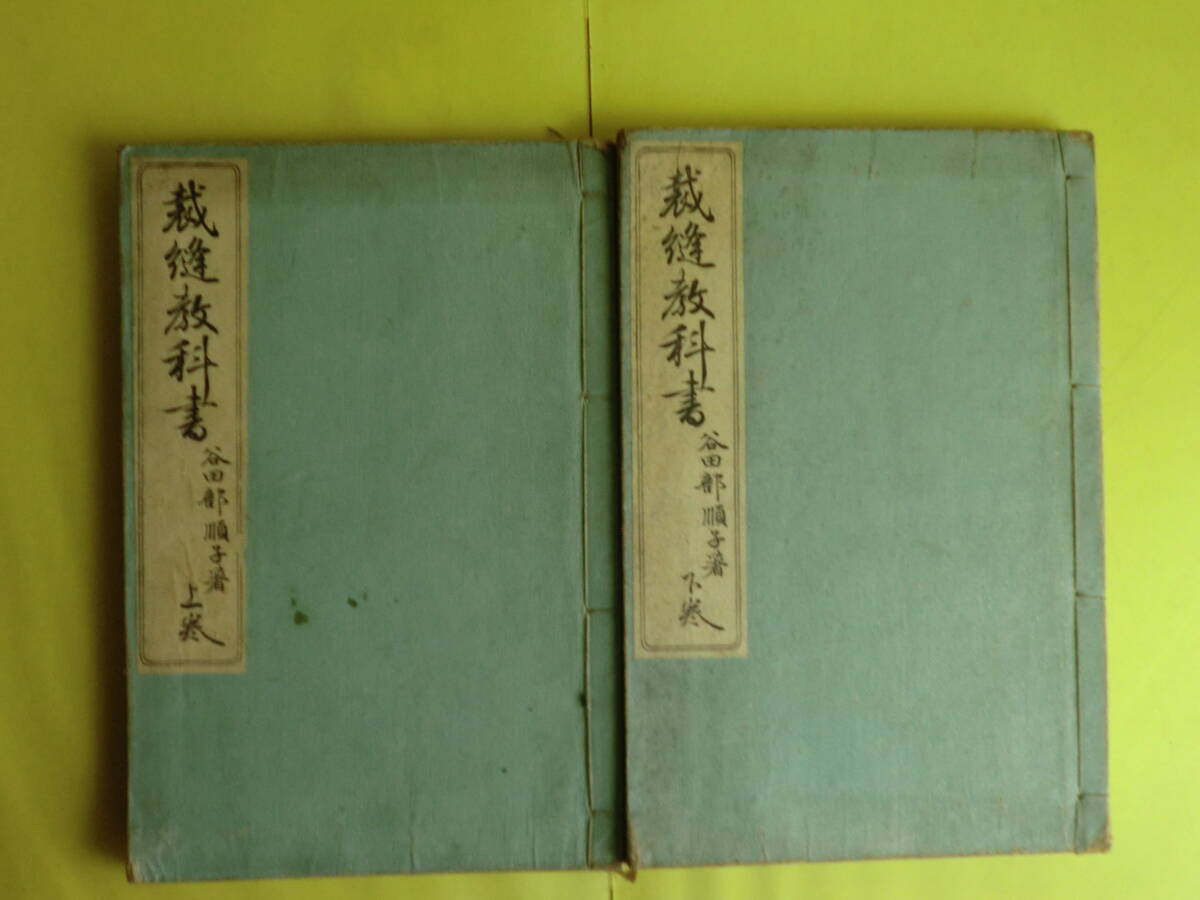 裁縫教科書
谷田部順子著
上巻
裁縫教科書
谷田部順子著
下巻